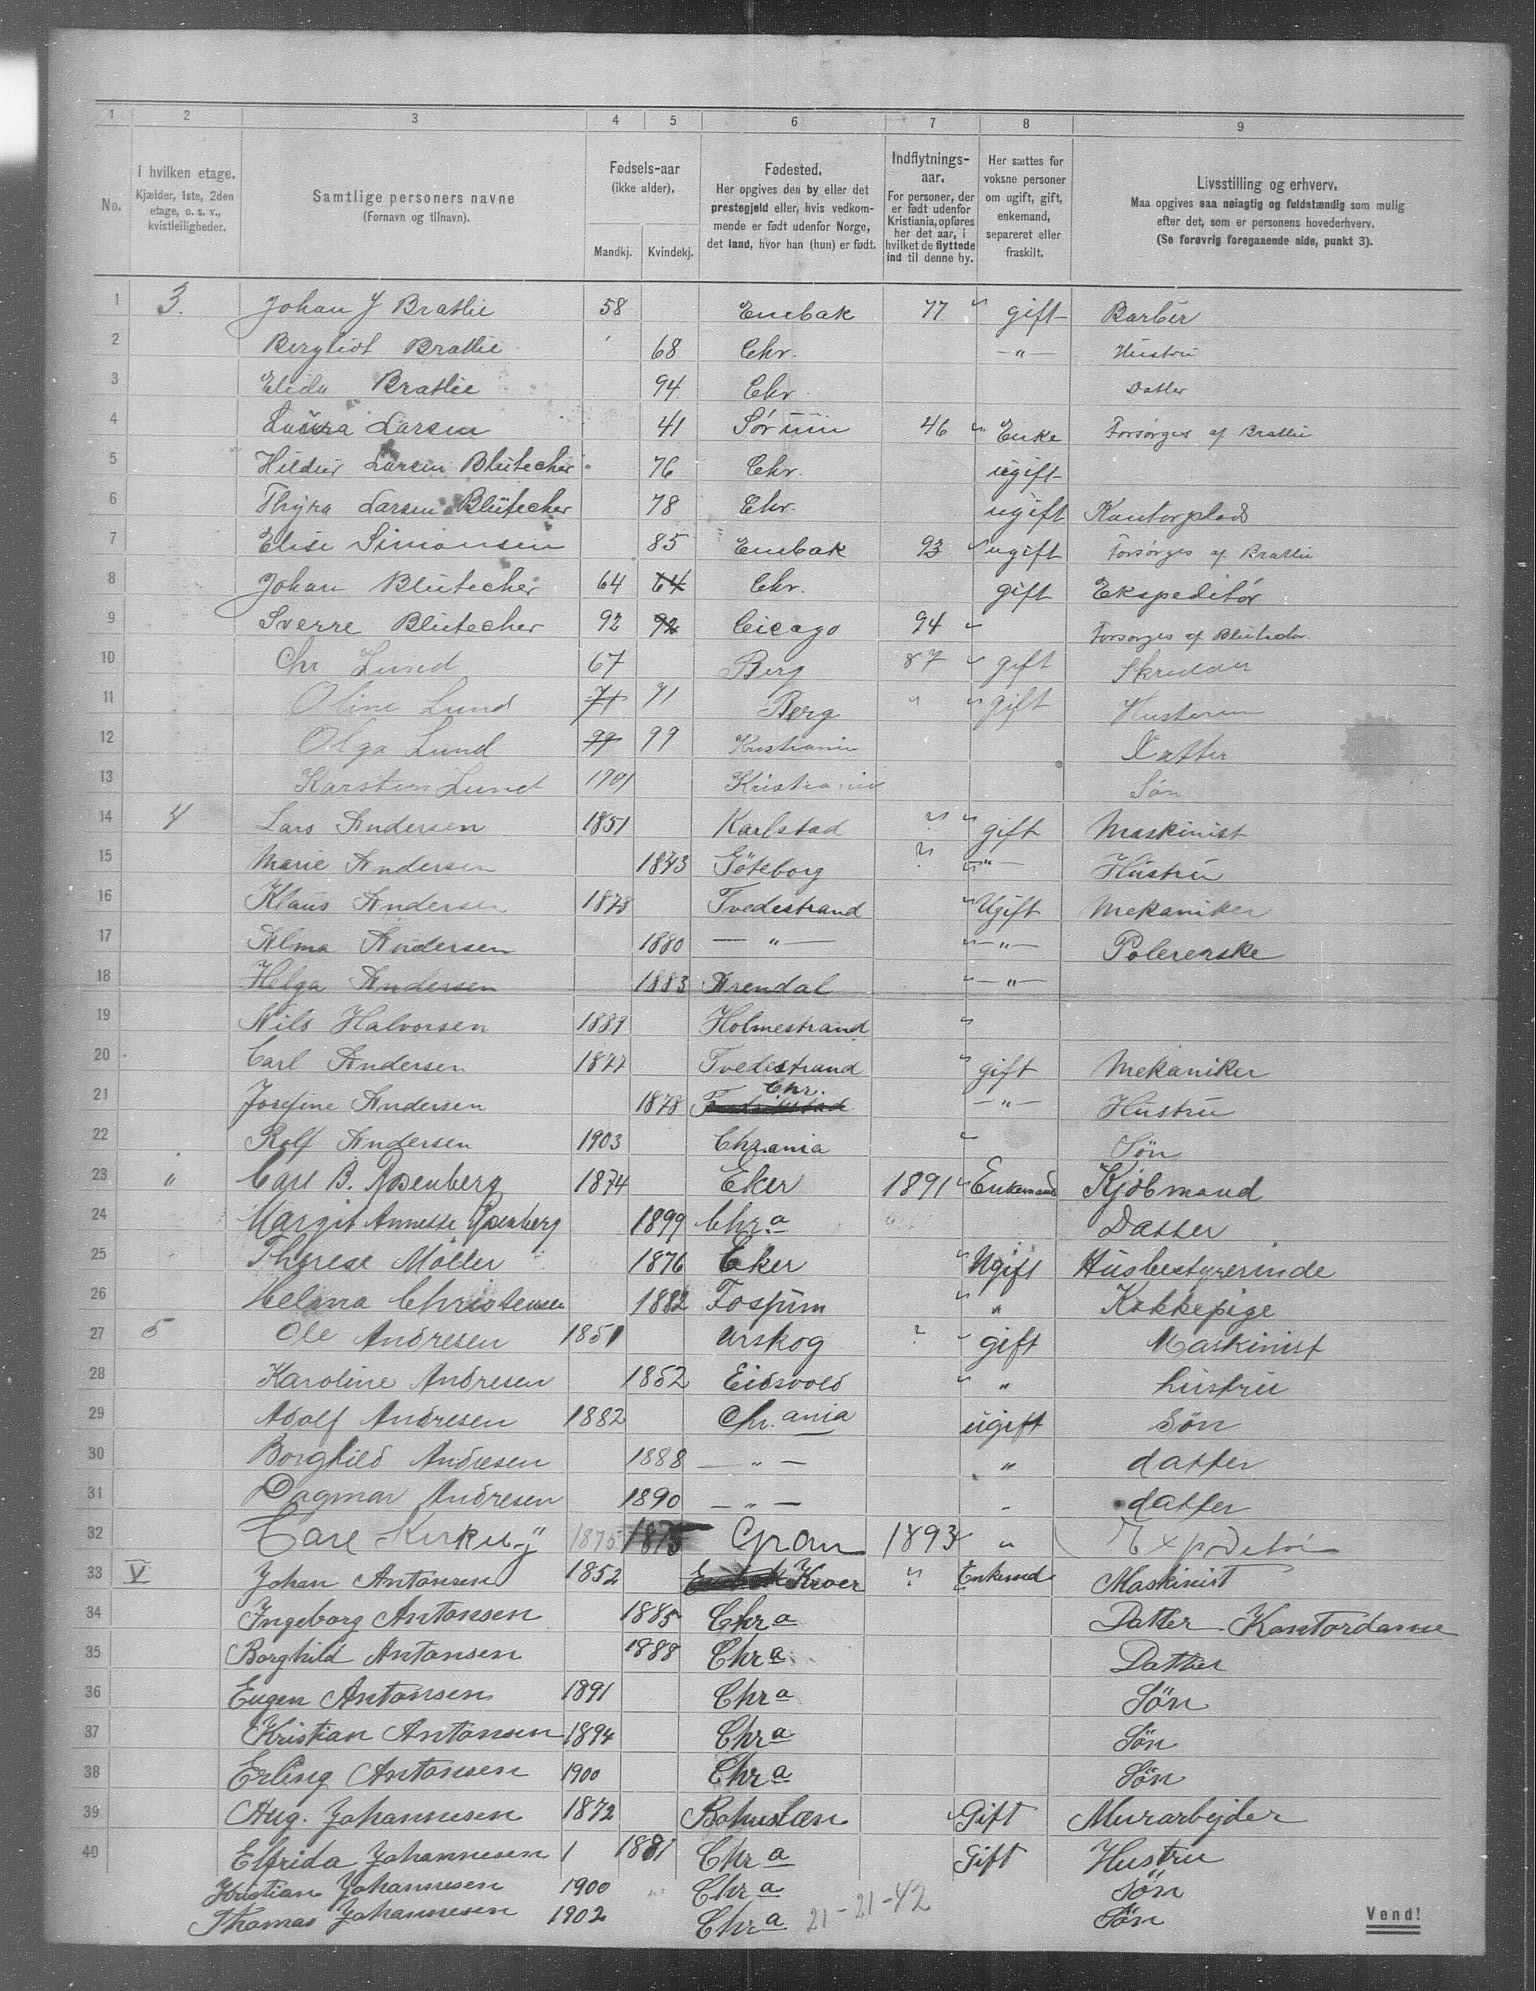 1 2 3 4 5 6 7 8 9
No. I hvilken etage. Kjælder, 1ste, 2den etage, o. s. v., kvistleiligheder. Samtlige personers navne (Fornavn og tilnavn). Fødsels-aar (ikke alder). Mandkj. Kvindekj. Fødested. Her opgives den by eller det prestegjeld eller, hvis vedkommende er født udenfor Norge, det land, hvor han (hun) er født. Indflytnings-aar. For personer, der er født udenfor Kristiania, opføres her det aar, i hvilket de flyttede ind til denne by. Her sættes for voksne personer om ugift, gift, enkemand, separeret eller fraskilt. Livsstilling og erhverv. Maa opgives saa nøiagtig og fuldstændig som mulig efter det, som er personens hovederhverv. (Se forøvrig foregaaende side, punkt 3).
1 3. Johan J Bratlie 58 Enebak 77 gift Barber
2 Bergliot Bratlie 68 Chr. —"— Hustru
3 Elida Bratlie 94 Chr. Datter
4 Laura Larsen 41 Sørum 46 Enke Forsørges af Bratlie
5 Hildur Larsen Blütecher 76 Chr. ugift
6 Thyra Larsen Blütecher 78 Chr. ugift Kantorplads
7 Elise Simonsen 85 Enebak 93 ugift Forsørges af Bratlie
8 Johan Blütecher 64 64 Chr. gift Ekspeditør
9 Sverre Blütecher 92 92 Cicago 94 Forsørges af Blütecher.
10 Chr Lund 67 Berg 87 gift Skredder
11 Oline Lund 71 71 Berg " gift Husteruen
12 Olga Lund 99 99 Kristiania Datter
13 Karsten Lund 1901 Kristiania Søn
14 4 Lars Andersen 1851 Karlstad ? gift Maskinist
15 Marie Andersen 1843 Göteborg ? —"— Hustru
16 Klaus Andersen 1878 Tvedestrand Ugift Mekaniker
17 Alma Andersen 1880 —"— —"— Polererske
18 Helga Andersen 1883 Arendal —"—
19 Nils Halvorsen 1889 Holmestrand
20 Carl Andersen 1877 Tvedestrand gift Mekaniker
21 Josefine Andersen 1878 Fredrikstad Chr. —"— Hustru
22 Rolf Andersen 1903 Chr.ania Søn
23 " Carl B. Rosenberg 1874 Eker 1891 Enkemand Kjøbmand
24 Margit Annette Rosenberg 1899 Chr.a Datter
25 Therese Møller 1876 Eker Ugift Husbestyrerinde
26 Helena Christensen 1882 Fossum " Kokkepige
27 5 Ole Andresen 1851 Urskog ? gift Maskinist
28 Karoline Andresen 1852 Eidsvold " hustru
29 Adolf Andresen 1882 Chr.ania ugift Søn
30 Borghild Andresen 1888 —"— " datter
31 Dagmar Andresen 1890 —"— " datter
32 Carl Kirkeby 1875 1875 Gran 1893 " Expeditør
33 V Johan Antonsen 1852 Kroer ? Enkemd Maskinist
34 Ingeborg Antonsen 1885 Chra Datter. Kontordame
35 Borghild Antonsen 1888 Chra Datter
36 Eugen Antonsen 1891 Chra Søn
37 Kristian Antonsen 1894 Chra Søn
38 Erling Antonsen 1900 Chra Søn
39 Aug. Johannesen 1872 Bohuslæn Gift Murarbejder
40 Elfrida Johannesen 1 1881 Chra Gift Hustru
Kristian Johannesen 1900 Chra Søn
Thomas Johannesen 1902 Chra 21-21-42 Søn
Vend!